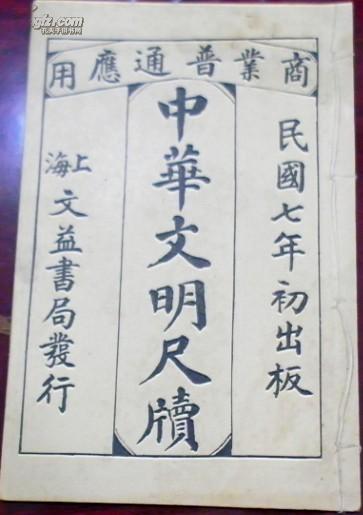 商業普通應用
民國七年初出板
中華文明尺牘
上海
文益書局發行